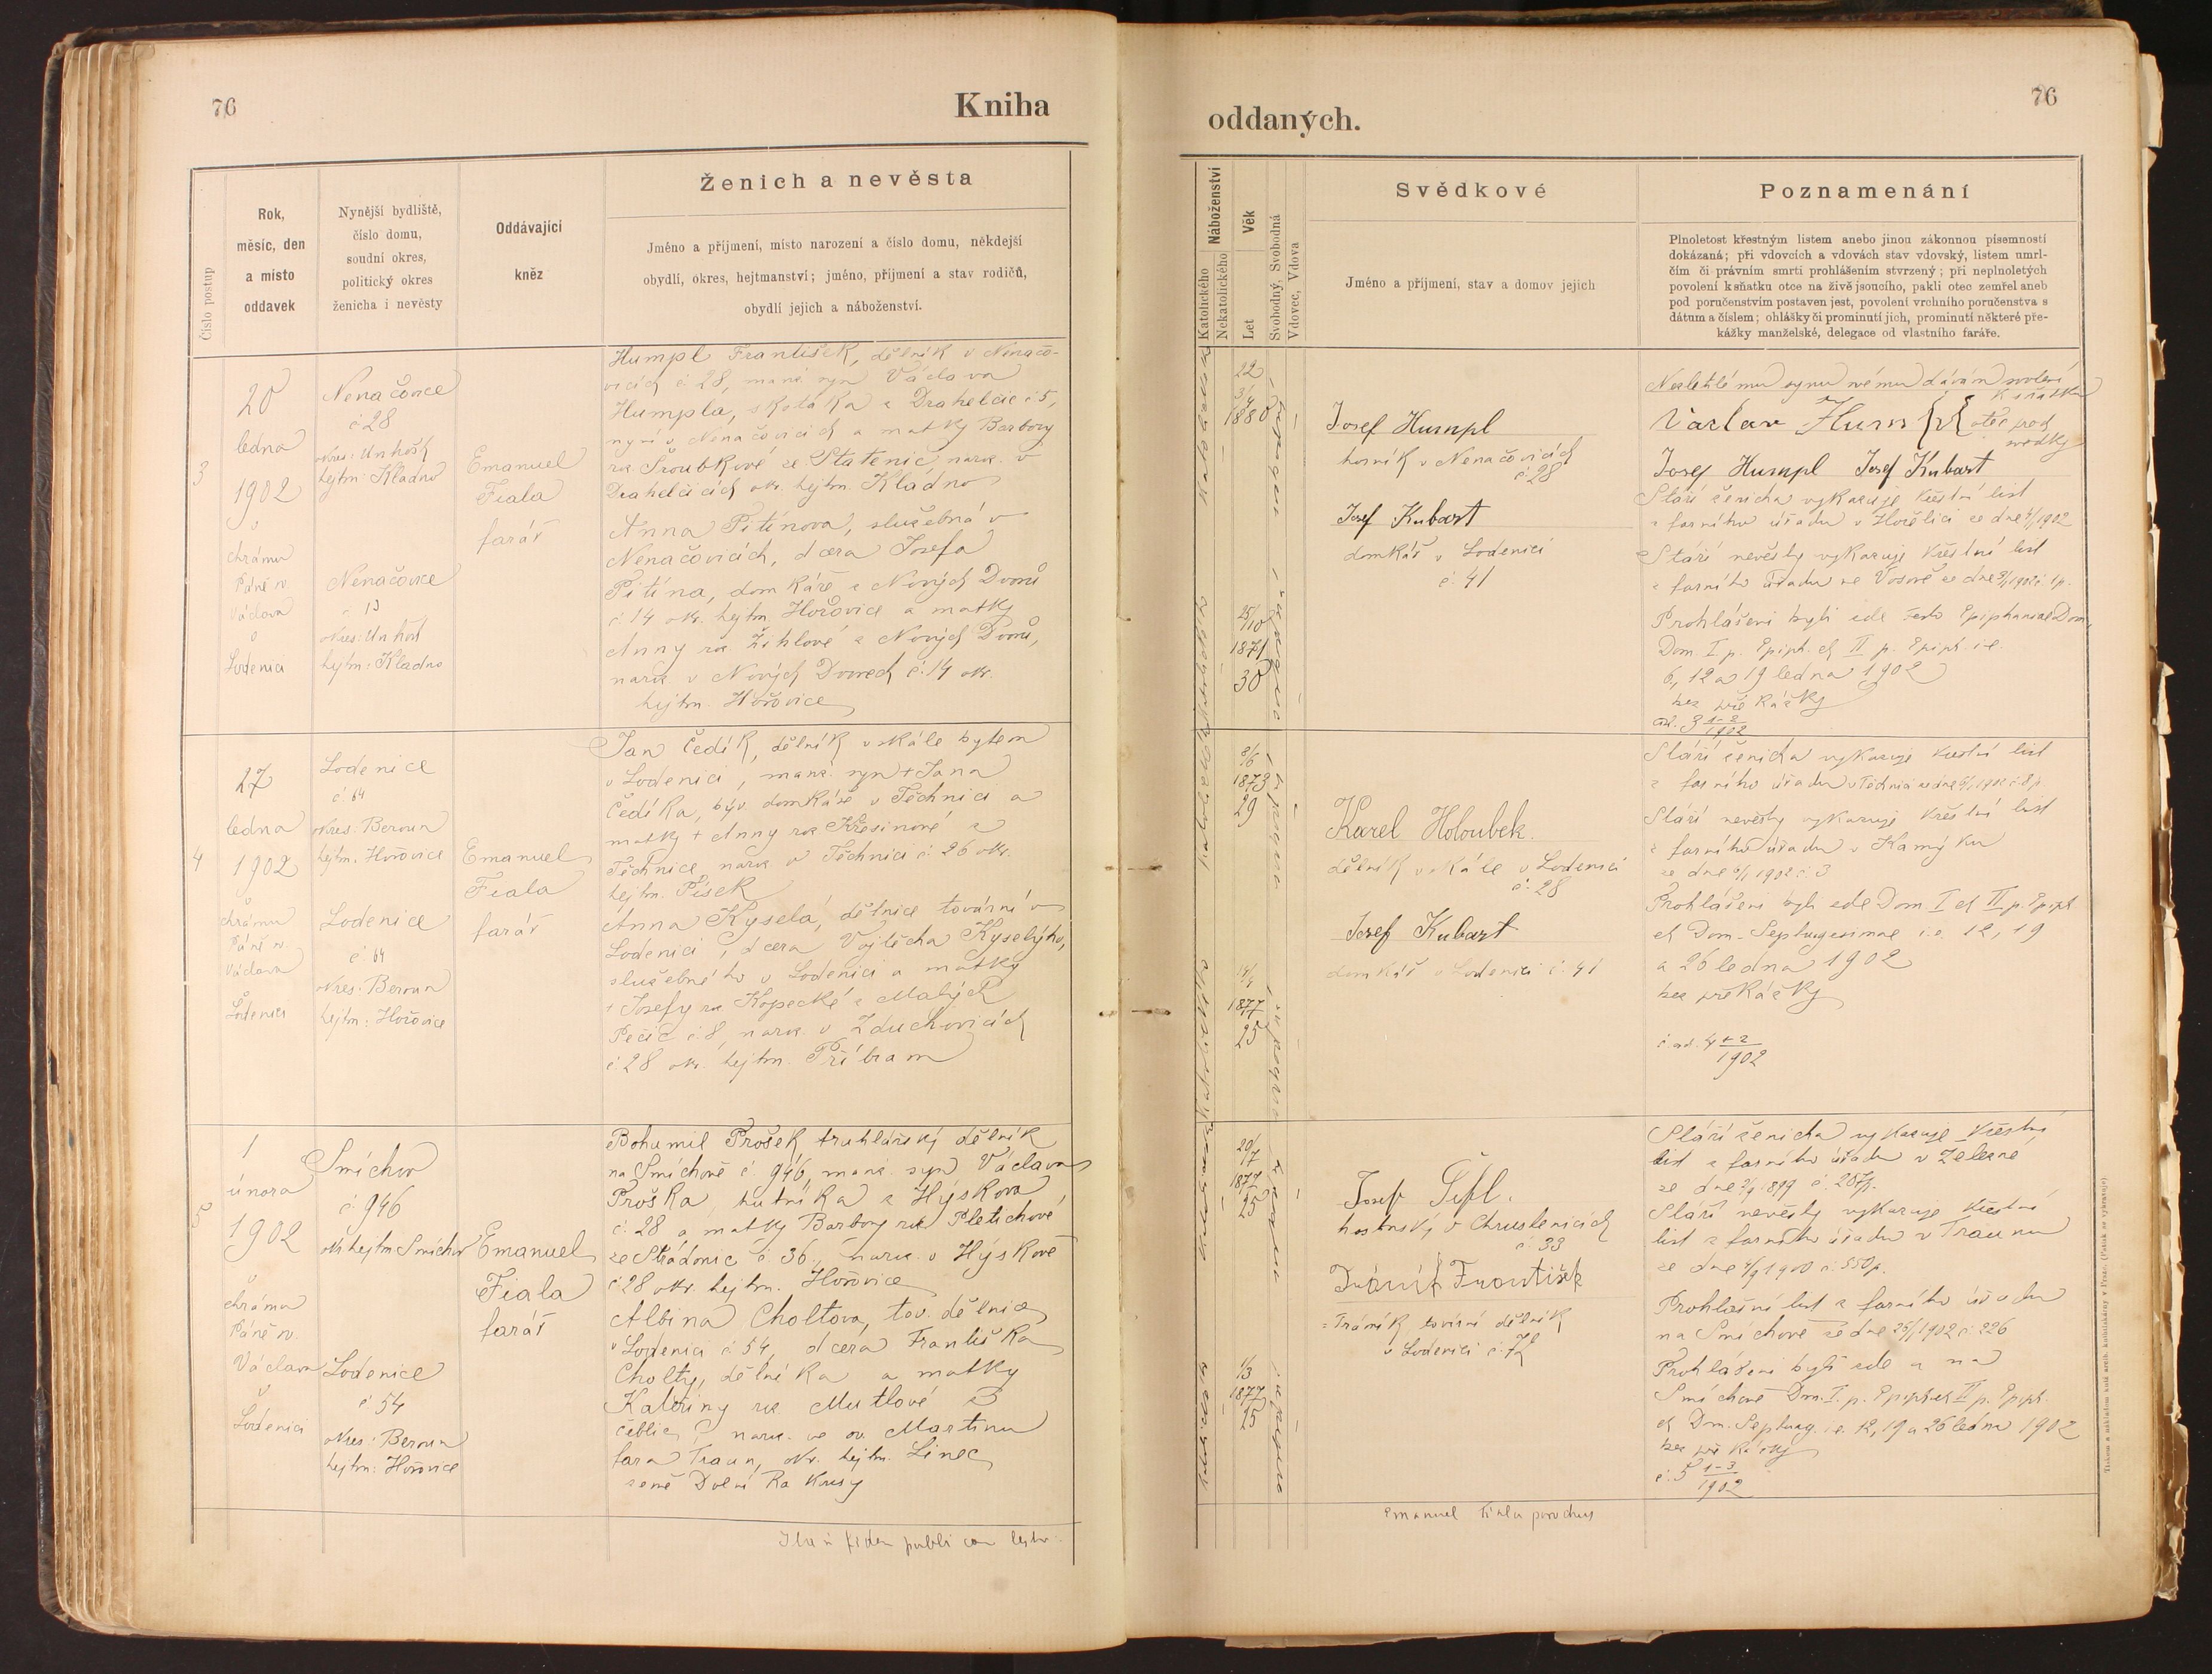 76
Kniha
Číslo postup
Rok,
měsíc, den
a místo
oddavek
Nynější bydliště,
číslo domu,
soudní okres,
politický okres
ženicha i nevěsty
Oddávající
kněz
Ženich a nevěsta
Jméno a příjmení, místo narození a číslo domu, někdejší
obydlí, okres, hejtmanství; jméno, příjmení a stav rodičů,
obydlí jejich a náboženství.
3
20
ledna
1902
v
chrámu
Páně sv.
Václava
v
Loděnici
Nenačovice
č. 28
okres: Unhošť
hejtm: Kladno
Nenačovice
č. 13
okres: Unhošť
hejtm: Kladno
Emanuel
Fiala
farář
Humpl František, dělník v Nenačo-
vicích č. 28, manž. syn Václava
Humpla, skotáka z Drahelčic č. 5,
nyní v Nenačovicích a matky Barbory
roz. Šroubkové ze Statenic, naroz. v
Drahelčicích okr. hejtm. Kladno
Anna Pitínova, služebná v
Nenačovicích, dcera Josefa
Pitína, domkáře z Nových Dvorů
č. 14 okr. hejtm. Hořovice a matky
Anny roz. Žihlové z Nových Dvorů,
naroz. v Nových Dvorech č. 14 okr.
hejtm. Hořovice
4
27
ledna
1902
v
chrámu
Páně sv.
Václava
v
Loděnici
Loděnice
č. 64
okres: Beroun
hejtm: Hořovice
Loděnice
č. 64
okres: Beroun
hejtm: Hořovice
Emanuel
Fiala
farář
Jan Čedík, dělník v skále bytem
v Loděnici, manž. syn + Jana
Čedíka, býv. domkáře v Těchnici a
matky + Anny roz. Křesinové z
Těchnice naroz. v Těchnici č. 26 okr.
hejtm. Písek
Anna Kyselá, dělnice tovární v
Loděnici, dcera Vojtěcha Kyselýho,
služebného v Loděnici a matky
+ Josefy roz. Kopecké z Malých
Pečic č. 8, naroz. v Zduchovicích
č. 28 okr. hejtm. Příbram
5
1
února
1902
v
chrámu
Páně sv.
Václava
v
Loděnici
Smíchov
č. 946
okr. hejtm. Smíchov
Loděnice
č. 54
okres: Beroun
hejtm: Hořovice
Emanuel
Fiala
farář
Bohumil Prošek truhlářský dělník
na Smíchově č. 946, manž. syn Václava
Proška, hutníka z Hýskova
č. 28 a matky Barbory roz. Pletichové
ze Stradonic č. 36, naroz. v Hýskově
č. 28 okr. hejtm. Hořovice
Albina Choltova, tov. dělnice
v Loděnici č. 54, dcera Františka
Cholty, dělníka a matky
Kateřiny roz. Mutlové z
naroz. ve sv. Martinu
fara Traun, okr. hejtm. Linec
země Dolní Rakousy
fidem publicam
oddaných.
76
Katolického
Nekatolického
Náboženství
Věk
Let
Svobodný, Svobodná
Vdovec, Vdova
Svědkové
Jméno a příjmení, stav a domov jejich
Poznamenání
Plnoletost křestným listem anebo jinou zákonnou písemností
dokázaná; při vdovcích a vdovách stav vdovský, listem umrl-
čím či právním smrti prohlášením stvrzený; při neplnoletých
povolení k sňatku otce na živě jsoucího, pakli otec zemřel aneb
pod poručenstvím postaven jest, povolení vrchního poručenstva s
dátum a číslem; ohlášky či prominutí jich, prominutí některé pře-
kážky manželské, delegace od vlastního faráře.
22
3/4
1880
25/10
1871
30
Josef Humpl
horník v Nenačovicích
č. 28
Josef Kubart
domkář v Loděnici
č. 41
Nezletilému synu svému dávám svolení
k sňatku
Václav Hum
otec před
svědky
Josef Humpl Josef Kubart
Stáří ženicha vykazuje křestní list
z farního úřadu v Hořelici ze dne 4/1 1902
Stáří nevěsty vykazuje křestní list
z farního úřadu ve Vosově ze dne
Prohlášeni byli zde festo Epiphaniae Dom,
Dom. I. p. Epiph. et II p. Epiph. i.e.
6., 12 a 19 ledna 1902
bez překážky
ad. 3 1-2/1902
1873
29
1877
25
Karel Holoubek.
dělník v skále v Loděnici
č. 28
Josef Kubart
domkář v Loděnici č. 41
Stáří ženicha vykazuje křestní list
z farního úřadu v Těchnici
Stáří nevěsty vykazuje křestní list
z farního úřadu v Kamýku
ze dne 1902 č. 3
Prohlášeni byli zde Dom. I et II. p. Epiph.
et Dom. Septuagesimae i.e. 12, 19
a 26 ledna 1902
bez překážky
č. ad. 4 1-2/1902
20/7
1877
25
1/3
1877
25
Josef Šifl.
hostinský v Chrustenicích
č. 33
František
= Trávník tovární dělník
v Loděnici č. 72
Stáří ženicha vykazuje křestní
list z farního úřadu v Železné
ze dne 2/9 1899 č. 287p.
Stáří nevěsty vykazuje křestní
list z farního úřadu v Traunu
ze dne 4/9 1900 č. 550p.
Prohlašní list z farního úřadu
na Smíchově ze dne 29/1 1902 č. 226
Prohlášeni byli zde a na
Smíchově Dom. I. p. Epiph. et II p. Epiph.
et Dom. Septuag. i.e. 12, 19 a 26 ledna 1902
bez překážky
č. 5 1-3/1902
Emanuel Fiala parochus